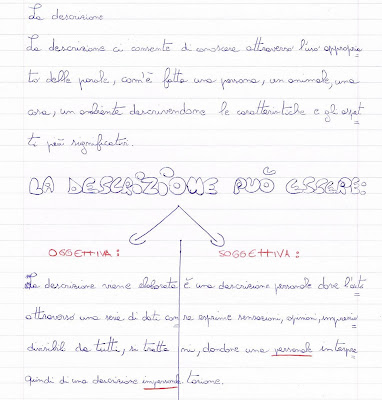 La descrizione
La descrizione ci consente di conoscere attraverso l'uso appropria
to delle parole, com'è fatta una persona, un animale, una
cosa, un ambiente descrivendone le caratteristiche e gli aspet
ti più significativi.
LA DESCRIZIONE PUÒ ESSERE:
OGGETTIVA:
La descrizione viene elaborata
attraverso una serie di dati con
divisibili da tutti, si tratta
quindi di una descrizione impersonale
SOGGETTIVA:
è una descrizione personale dove l'auto
re esprime sensazioni, opinioni, impressio
ni, dandone una personale interpre
tazione.